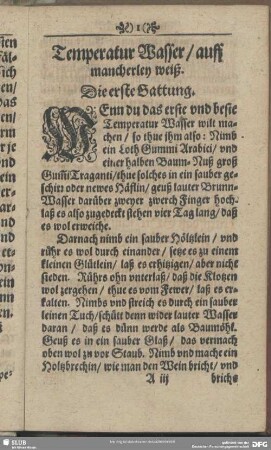 1
Temperatur Wasser / auff
mancherley weiß.
Die erste Gattung.
WEnn du das erste vnd beste
Temperatur Wasser wilt ma-
chen / so thue ihm also: Nimb
ein Loth Gummi Arabici / vnd
einer halben Baum-Nuß groß
Gum̃i Traganti / thue solches in ein sauber ge-
schirr oder newes Häflin / geuß lauter Brunn-
Wasser darüber zweyer zwerch Finger hoch /
laß es also zugedeckt stehen vier Tag lang / daß
es wol erweiche.
Darnach nimb ein sauber Höltzlein / vnd
rühr es wol durch einander / setze es zu einem
kleinen Glütlein / laß es erhitzigen / aber nicht
sieden. Rührs ohn vnterlaß / daß die Klotzen
wol zergehen / thue es vom Fewer / laß es er-
kalten. Nimbs vnd streich es durch ein sauber
leinen Tuch / schütt denn wider lauter Wasser
daran / daß es dünn werde als Baumöhl.
Geuß es in ein sauber Glaß / das vermach
oben wol zu vor Staub. Nimb vnd mache ein
Holtzbrechin / wie man den Wein bricht / vnd
A iij brichs
SLUB
DFG